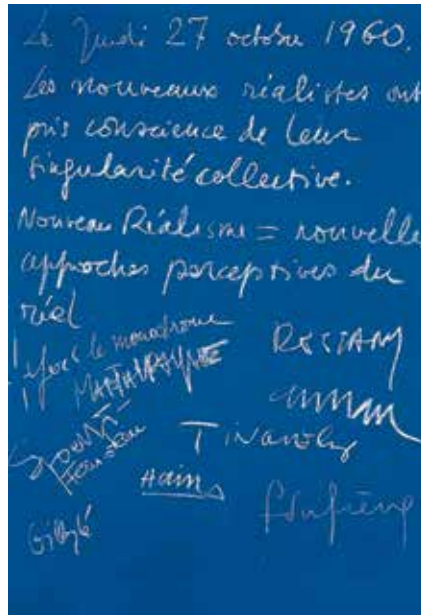 Le Jeudi 27 octobre 1960.
Les nouveaux réalistes ont
pris conscience de leur
singularité collective.
Nouveau Réalisme = nouvelles
approches perceptives du
réel
Yves le monochrome
RESTANY
Arman
Tinguely
Hains
Dufrêne